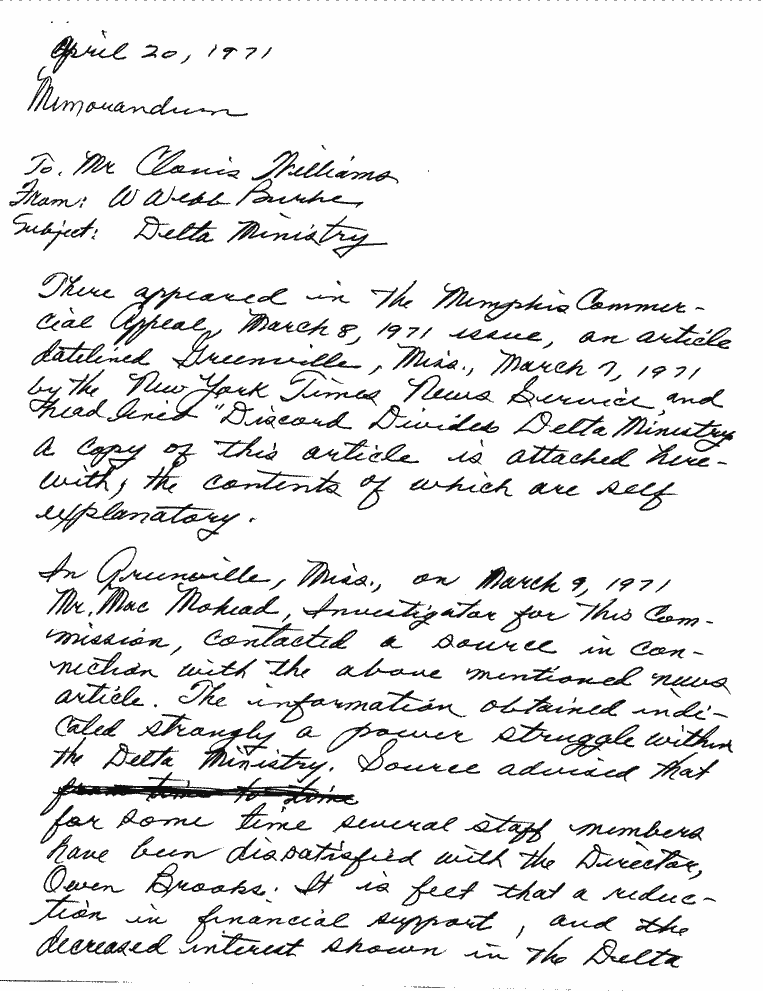 April 20, 1971
Memorandum
To. Mr Clovis Williams
From: W Webb Burke
Subject: Delta Ministry
There appeared in the Memphis Commer-
cial Appeal, March 8, 1971 issue, an article
datelined Greenville, Miss., March 7, 1971
by the New York Times News Service, and
headlined "Discord Divides Delta Ministry
A copy of this article is attached here-
with, the contents of which are self
explanatory.
In Greenville, Miss., on March 9, 1971
Mr. Mac Mohead, Investigator for this Com-
mission, contacted a source in con-
nection with the above mentioned news
article. The information obtained indi-
cated strongly a power struggle within
the Delta Ministry. Source advised that
from time to time
for some time several staff members
have been dissatisfied with the Director,
Owen Brooks. It is felt that a reduc-
tion in financial support, and the
decreased interest shown in the Delta